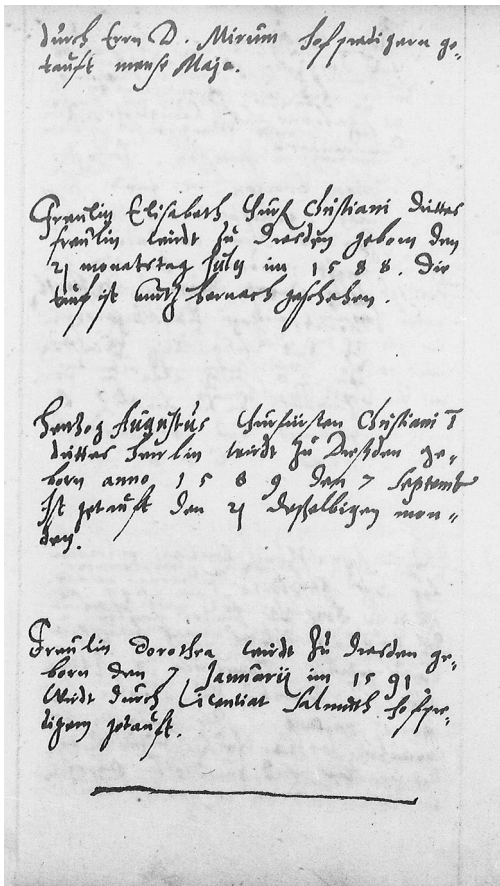 durch Ern D. Mirum hofpredigern ge„
taufft mense Majo.
Freulin Elisabeth Churf Christiani drittes
freulin wirdt zu Dresden geborn den
21 monatstag July im 1588. die
tauf ist hernach geschehen.
Hertzog Augustus Churfürsten Christiani I
drittes herlin wirdt zu Dresden ge„
born anno 1589 den 7 Septemb
ist getauft den 21 desselbigen mon„
den.
Freulin Dorothea wirdt zu Dresden ge„
born den 7 Januarij im 1591
Wirdt durch Licentiat Salmuth hofpre„
digern getauft.